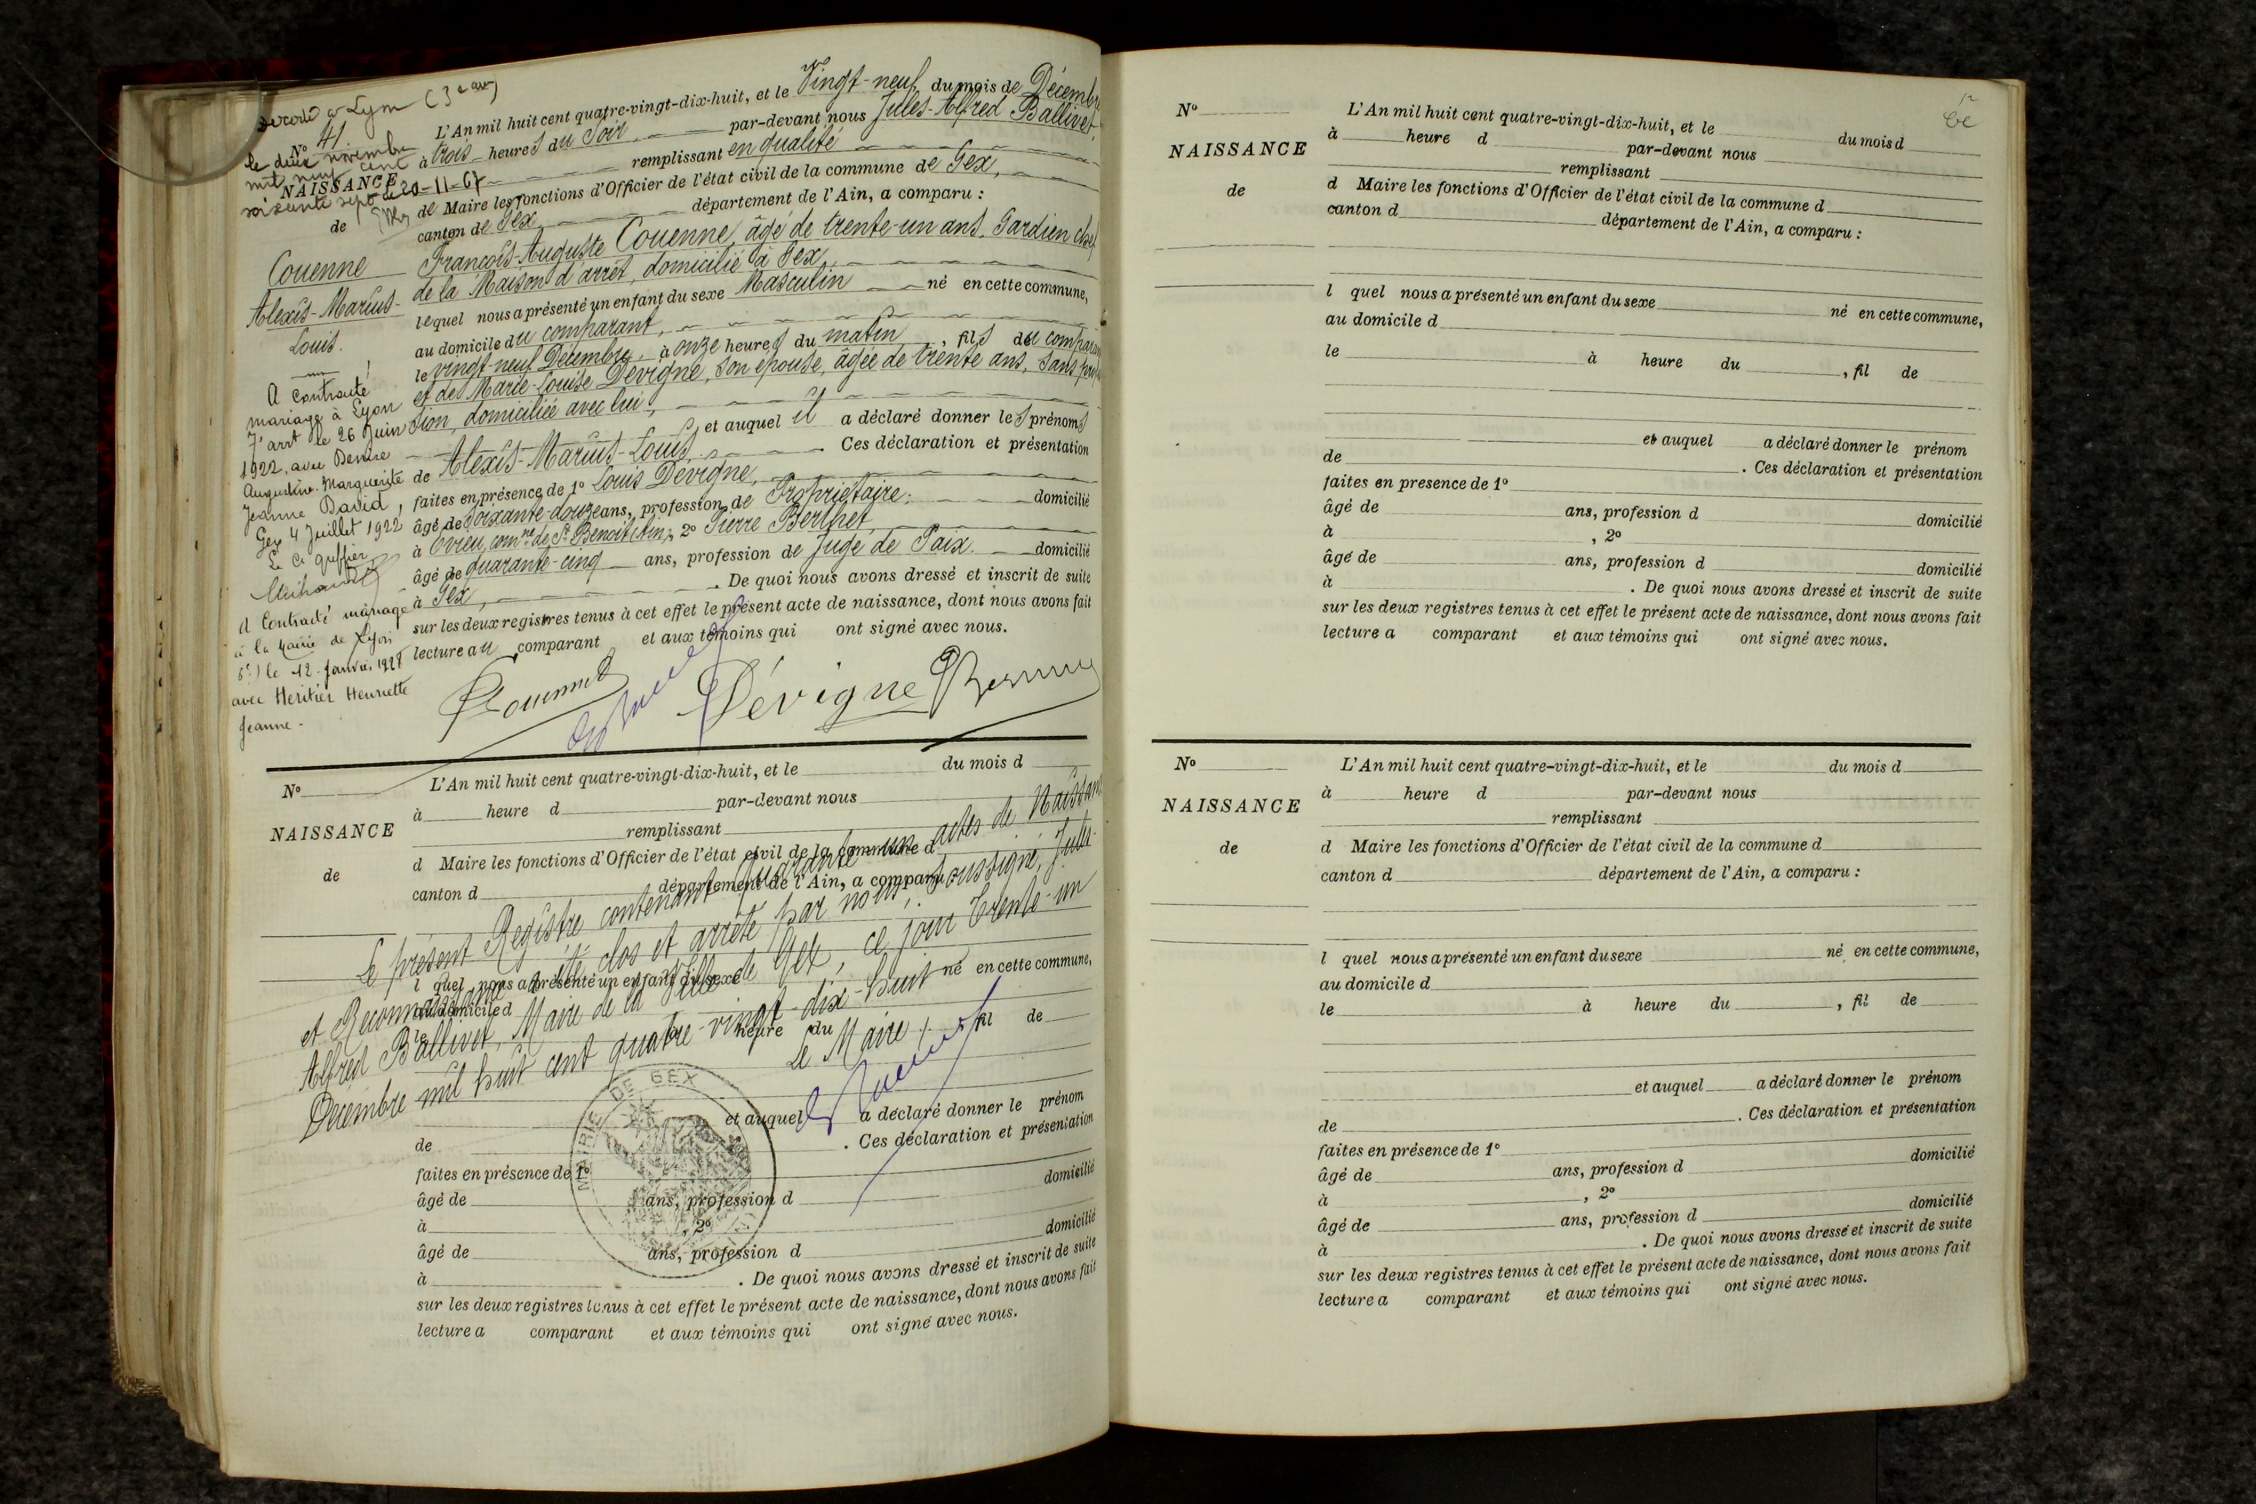 Décédé à Lyon (3e arr)
Le deux novembre
mil neuf cent
soixante sept
20-11-67
No 41
NAISSANCE
de
Couenne
Alexis-Marius-
Louis.
A contracté
mariage à Lyon
7e arrt le 26 Juin
1922, avec Denise
Augustine Marguerite
Jeanne David,
Gex 4 Juillet 1922
Le Cr greffier
A Contracté mariage
à la Mairie de Lyon
6e) le 12 Janvier 1928
avec Héritier Henriette
Jeanne -
L'An mil huit cent quatre-vingt-dix-huit, et le Vingt-neuf du mois de Décembre
à trois heures du Soir par-devant nous Jules-Alfred Ballivet,
remplissant en qualité
de Maire les fonctions d'Officier de l'état civil de la commune de Gex,
canton de Gex département de l'Ain, a comparu :
François-Auguste Couenne, âgé de trente-un ans, Gardien chef
de la Maison d'arrêt, domicilié à Gex,
lequel nous a présenté un enfant du sexe Masculin né en cette commune,
au domicile du comparant,
le vingt-neuf Décembre à onze heures du matin, fils du comparant
et de Marie-Louise Dévigne, son épouse, âgée de trente ans, Sans profes
sion, domiciliée avec lui, et auquel il a déclaré donner les prénoms
de Alexis-Marius-Louis. Ces déclaration et présentation
faites en présence de 1o Louis Dévigne,
âgé de Soixante-douze ans, profession de Propriétaire, domicilié
à Evieu, comne de St Benoit (Ain), 2o Pierre Berthet,
âgé de quarante-cinq ans, profession de Juge de Paix domicilié
à Gex, . De quoi nous avons dressé et inscrit de suite
sur les deux registres tenus à cet effet le présent acte de naissance, dont nous avons fait
lecture au comparant et aux témoins qui ont signé avec nous.
Couenne Dévigne
No
NAISSANCE
de
L'An mil huit cent quatre-vingt-dix-huit, et le du mois d
à heure d par-devant nous
remplissant
d Maire les fonctions d'Officier de l'état civil de la commune d
canton d département de l'Ain, a comparu :
Le présent Registre contenant Quarante-un actes de Naissance
et Reconnaissance a été clos et arrêté par nous, Soussigné, Jules-
Alfred Ballivet, Maire de la Ville de Gex, ce jour trente-un
Décembre mil huit cent quatre-vingt-dix-huit
Le Maire,
l quel nous a présenté un enfant du sexe né en cette commune,
au domicile d
le à heure du , fil de
MAIRIE DE GEX
et auquel a déclaré donner le prénom
de . Ces déclaration et présentation
faites en présence de 1o
âgé de ans, profession d domicilié
à , 2o
âgé de ans, profession d domicilié
à . De quoi nous avons dressé et inscrit de suite
sur les deux registres tenus à cet effet le présent acte de naissance, dont nous avons fait
lecture a comparant et aux témoins qui ont signé avec nous.
No
NAISSANCE
de
L'An mil huit cent quatre-vingt-dix-huit, et le du mois d
à heure d par-devant nous
remplissant
d Maire les fonctions d'Officier de l'état civil de la commune d
canton d département de l'Ain, a comparu :
l quel nous a présenté un enfant du sexe né en cette commune,
au domicile d
le à heure du , fil de
et auquel a déclaré donner le prénom
de . Ces déclaration et présentation
faites en presence de 1o
âgé de ans, profession d domicilié
à , 2o
âgé de ans, profession d domicilié
à . De quoi nous avons dressé et inscrit de suite
sur les deux registres tenus à cet effet le présent acte de naissance, dont nous avons fait
lecture a comparant et aux témoins qui ont signé avec nous.
No
NAISSANCE
de
L'An mil huit cent quatre-vingt-dix-huit, et le du mois d
à heure d par-devant nous
remplissant
d Maire les fonctions d'Officier de l'état civil de la commune d
canton d département de l'Ain, a comparu :
l quel nous a présenté un enfant du sexe né en cette commune,
au domicile d
le à heure du , fil de
et auquel a déclaré donner le prénom
de . Ces déclaration et présentation
faites en présence de 1o
âgé de ans, profession d domicilié
à , 2o
âgé de ans, profession d domicilié
à . De quoi nous avons dressé et inscrit de suite
sur les deux registres tenus à cet effet le présent acte de naissance, dont nous avons fait
lecture a comparant et aux témoins qui ont signé avec nous.